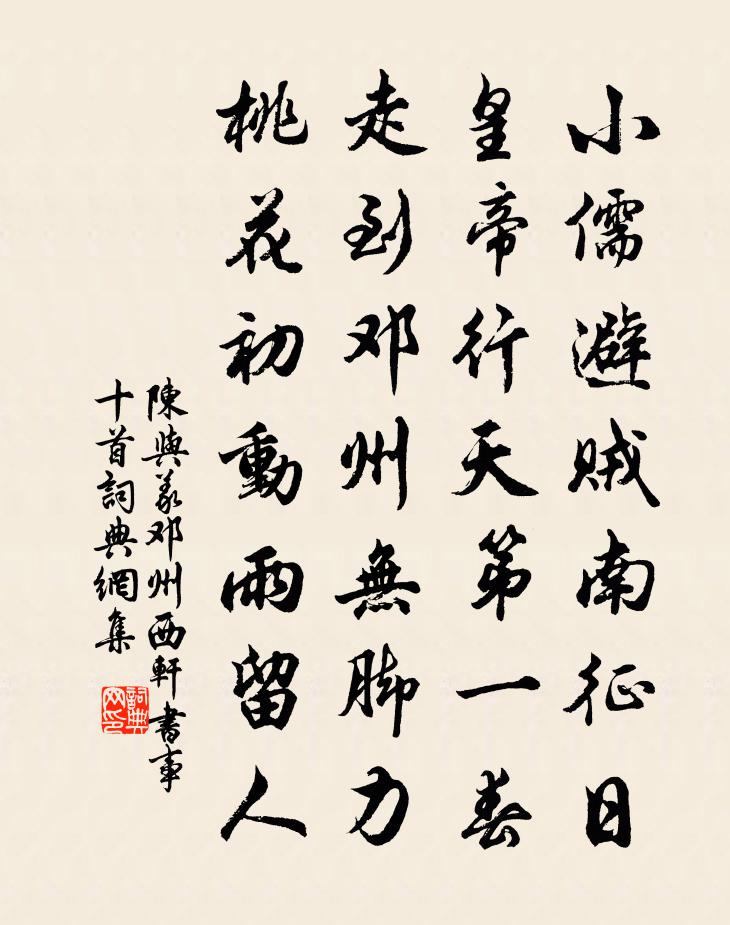 小儒避賊南征日
皇帝行天第一春
走到邓州無脚力
桃花初動雨留人
陳與義邓州西軒書事
十首詞典網集
詞典
网印